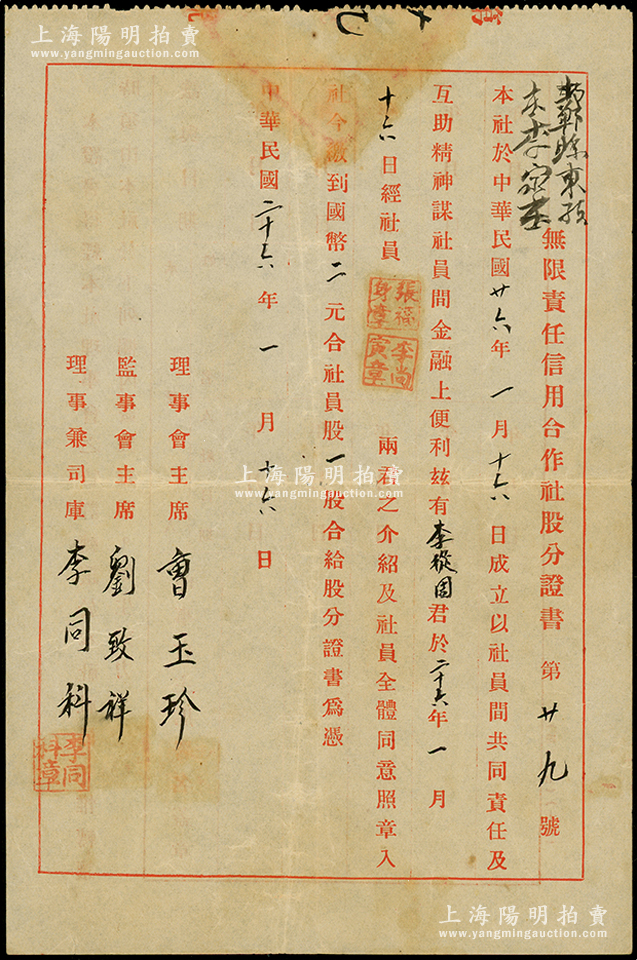 上海陽明拍賣
www.yangmingauction.com
縣東
李
無限責任信用合作社股分證書 第廿九號
本社於中華民國廿六年一月十六日成立以社員間共同責任及
互助精神謀社員間金融上便利茲有李從周君於二十六年一月
十六日經社員 張福身章 李尚寅章 兩君之介紹及社員全體同意照章入
社今繳到國幣二元合社員股一股合給股分證書為憑
中華民國二十六年一月十六日
理事會主席 曹玉珍
監事會主席 劉致祥
理事兼司庫 李同科
李同科章
上海陽明拍賣
www.yangmingauction.com
上海陽明拍賣
www.yangmingauction.com